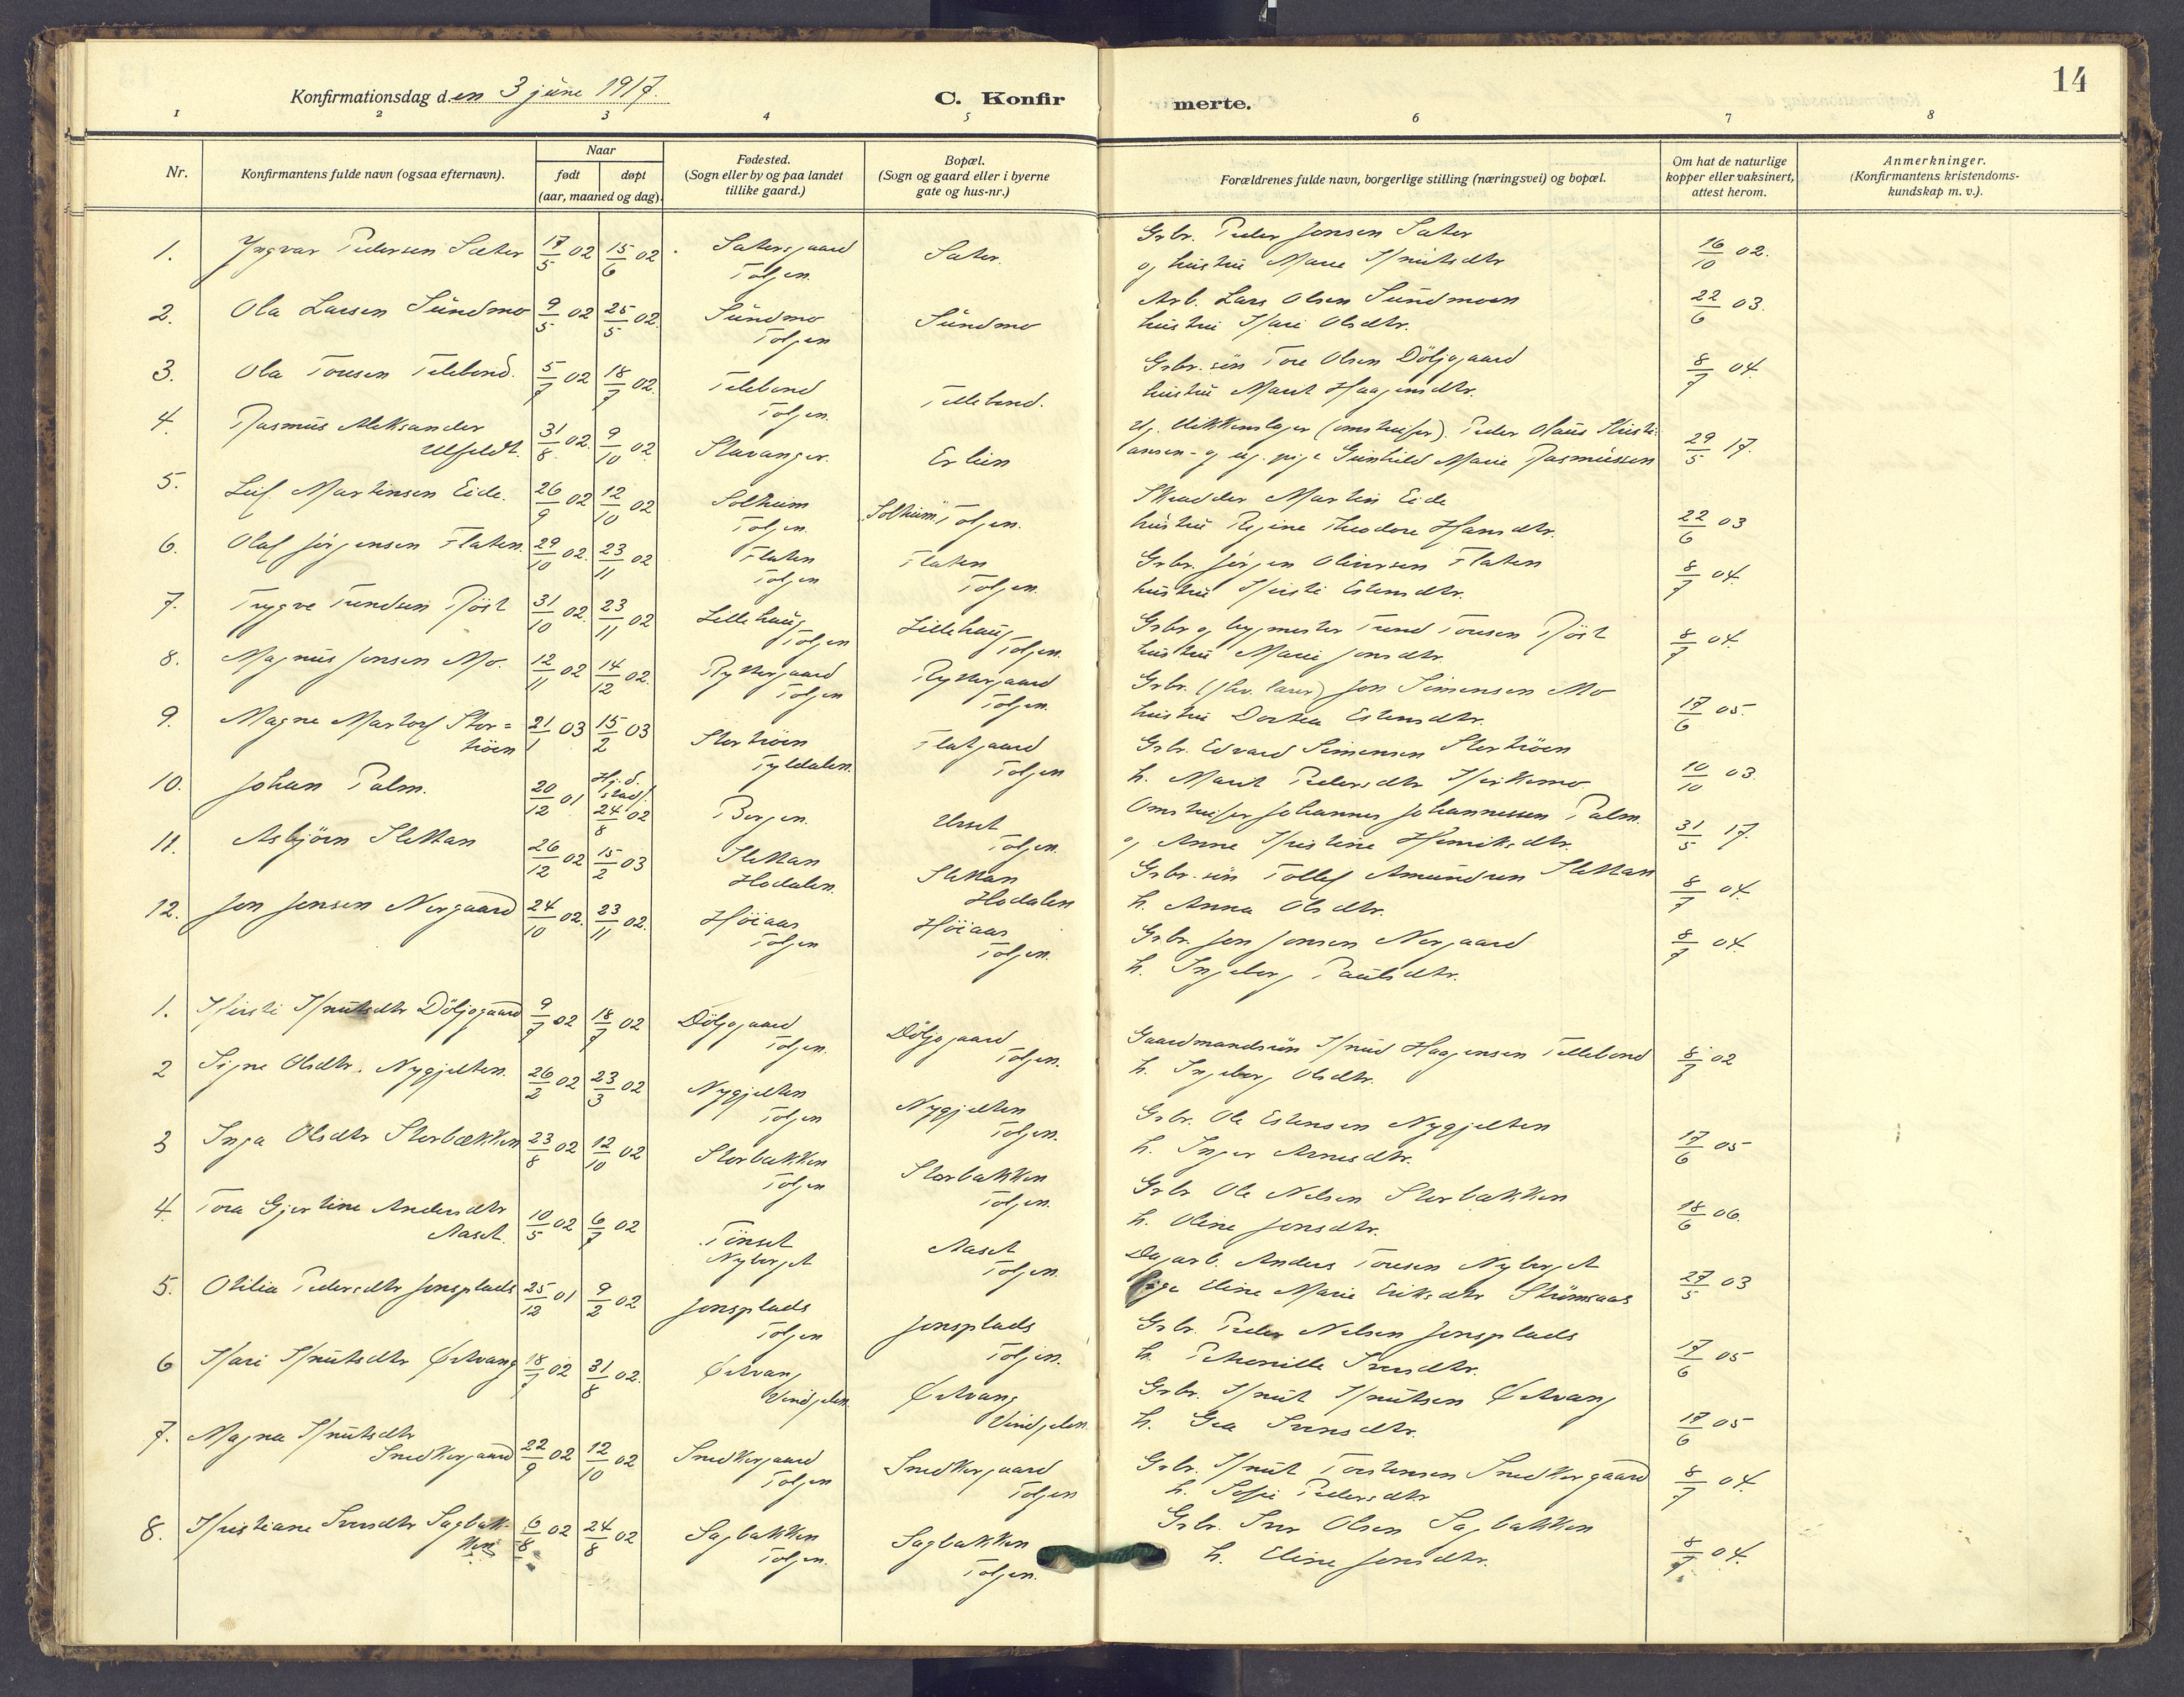 14
Konfirmationsdag den 3 june 1917.
C. Konfirmerte.
1 2 3 4 5 6 7 8
Nr.
Konfirmantens fulde navn (ogsaa efternavn).
Naar
født døpt
(aar, maaned og dag).
Fødested.
(Sogn eller by og paa landet
tillike gaard.)
Bopæl.
(Sogn og gaard eller i byerne
gate og hus-nr.)
Forældrenes fulde navn, borgerlige stilling (næringsvei) og bopæl.
Om hat de naturlige
kopper eller vaksinert,
attest herom.
Anmerkninger.
(Konfirmantens kristendoms-
kundskap m. v.).
1. Yngvar Pedersen Sæter 17/5 02 15/6 02 Sætersgaard Sæter. Grbr. Peder Jonsen Sæter 16/10 02.
Tolgen. og hustru Marie Knutsdtr
2. Ola Larsen Sundmo 9/5 02 25/5 02. Sundmo Sundmo Arb. Lars Olsen Sundmoen 22/6 03.
Tolgen hustru Kari Olsdtr.
3. Ola Toresen Telebond. 5/7 02 18/7 02. Telebond Tellebond. Grbr. søn Tore Olsen Döljogaard 8/7 04.
Tolgen. hustru Marit Haagensdtr.
4. Rasmus Aleksander 31/8 02. 9/10 02. Stavanger. Erlien Ug. blikkenslager (omstreifer). Peder Olaus Kristi- 29/5 17.
Ulfeldt. ansen - og ug. pige Gunhild Marie Rasmussen
5. Leif Martinsen Eide. 26/9 02 12/10 02 Solheim Solheim. Tolgen. Skrædder Martin Eide 22/6 03
Tolgen. hustru Regine Theodore Hansdtr.
6. Olaf Jørgensen Flaten. 29/10 02. 23/11 02 Flaten Flaten Grbr. Jørgen Oliversen Flaten 8/7 04.
Tolgen Tolgen. hustru Kirsti Estensdtr.
7. Trygve Trondsen Röst 31/10 02. 23/11 02 Lillehaug Lillehaug Grbr og bygmester Trond Toresen Röst 8/7 04.
Tolgen Tolgen. hustru Marie Jonsdtr.
8. Magnus Jonsen Mo. 12/11 02 14/12 02. Ryttergaard Ryttergaard Grbr. (fhv. lærer) Jon Simensen Mo 17/6 05.
Tolgen Tolgen. hustru Dortea Estensdtr.
9. Magne Martolf Stor= 21/1 03 15/2 03 Stortröen Flatgaard Grbr. Edvard Simensen Stortröen 10/10 03.
tröen Tyldalen. Tolgen h. Marit Pedersdtr Kirkemo
10. Johan Palm. 20/12 01 Hj. d. stadf. 24/8 02 Bergen. Urset Omstreifer Johannes Johannessen Palm. 31/5 17.
Tolgen. og Anne Kristine Henriksdtr.
11. Asbjörn Slettan 26/12 02 15/2 03 Slettan Slettan Grbr. søn Tollef Amundsen Slettan 8/7 04.
Hodalen. Hodalen h. Anna Olsdtr.
12. Jon Jonsen Norgaard 24/10 02. 23/11 02. Höiaas Höiaas Grbr. Jon Jonsen Norgaard 8/7 04
Tolgen Tolgen. h. Ingeborg Paulsdtr.
1. Kirsti Knutsdtr Döljogaard 9/7 02 18/7 02 Döljogaard Döljogaard Gaardmandssön Knud Haagensen Tellebond 8/7 02
Tolgen. Tolgen. h. Ingeborg Olsdtr.
2 Signe Olsdtr. Nygjelten. 26/2 02 23/3 02 Nygjelten Nygjelten Grbr. Ole Estensen Nygjelten 17/6 05
Tolgen Tolgen. h. Inger Arnesdtr.
3 Inga Olsdtr Storbækken 23/8 02 12/10 02 Storbækken Storbækken Grbr Ole Nelsen Storbækken 18/6 06.
Tolgen Tolgen. h. Oline Jonsdtr.
4. Tora Gjertine Andersdtr 10/5 02 6/7 02 Tönset Aaset Dagarb. Anders Toresen Nyberget 27/5 03
Aaset. Nyberget Tolgen. pige Eline Marie Eriksdtr Strömsaas
5. Otilia Pedersdtr Jonsplads 25/12 01 9/2 02 Jonsplads Jonsplads Grbr. Peder Nelsen Jonsplads 17/6 05
Tolgen Tolgen. h. Petronille Svendtr.
6 Kari Knutsdtr Østvang 18/7 02 31/8 02. Østvang Østvang Grbr. Knut Knutsen Østvang 17/6 05
Vingelen. Vingelen. h. Gea Svensdtr.
7. Magna Knutsdtr 22/9 02 12/10 02 Snedkergaard Snedkergaard Grbr. Knut Torstensen Snedkergaard 8/7 04.
Snedkergaard Tolgen Tolgen h. Sofie Pedersdtr
8. Kristiane Sversdtr Sagbæk- 6/8 02 24/8 02 Sagbækken Sagbækken Grbr. Sver Olsen Sagbækken 8/7 04.
ken Tolgen. Tolgen. h. Eline Jonsdtr.